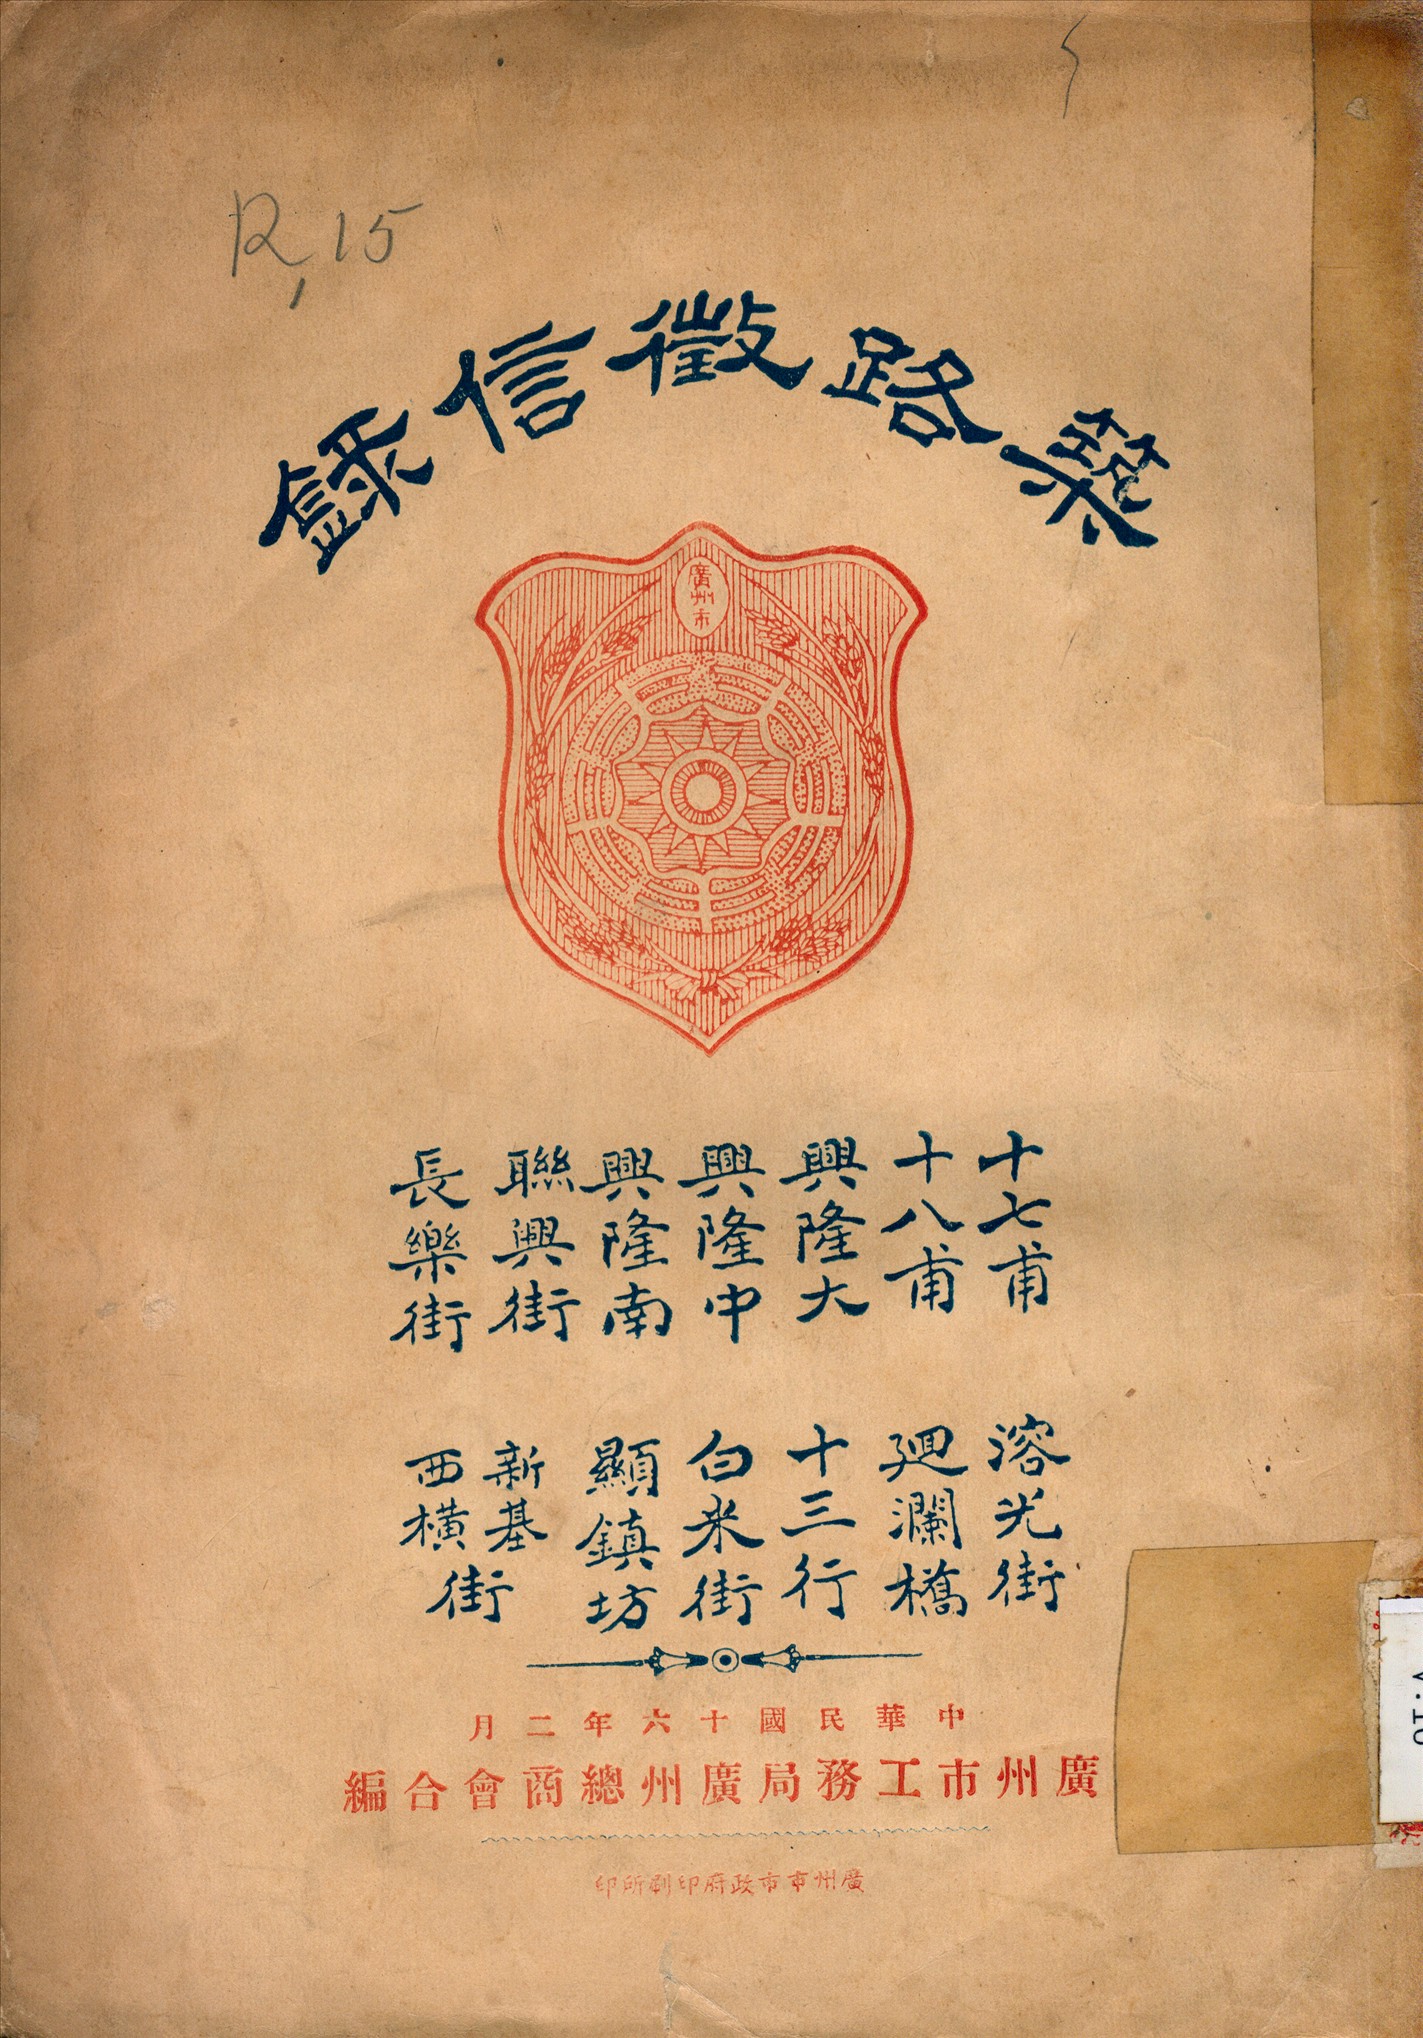 R, 15
築路徵信錄
廣州市
十七甫
十八甫
興隆大
興隆中
興隆南
聯興街
長樂街
溶光街
迴瀾橋
十三行
白米街
顯鎮坊
新基
西橫
街
中華民國十六年二月
廣州市工務局廣州總商會合編
廣州市市政府印刷所印
V.10